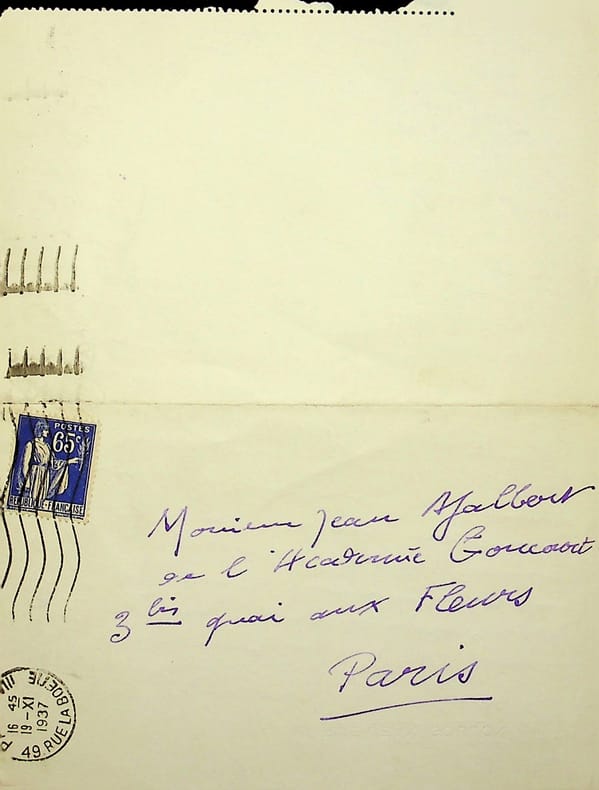 POSTES
65c
REPUBLIQUE-FRANÇAISE
Monsieur Jean Ajalbert
de l'Academie Goncourt
3 bis quai aux Fleurs
Paris
16 45
19-XI
1937
49.RUE LA BOETIE